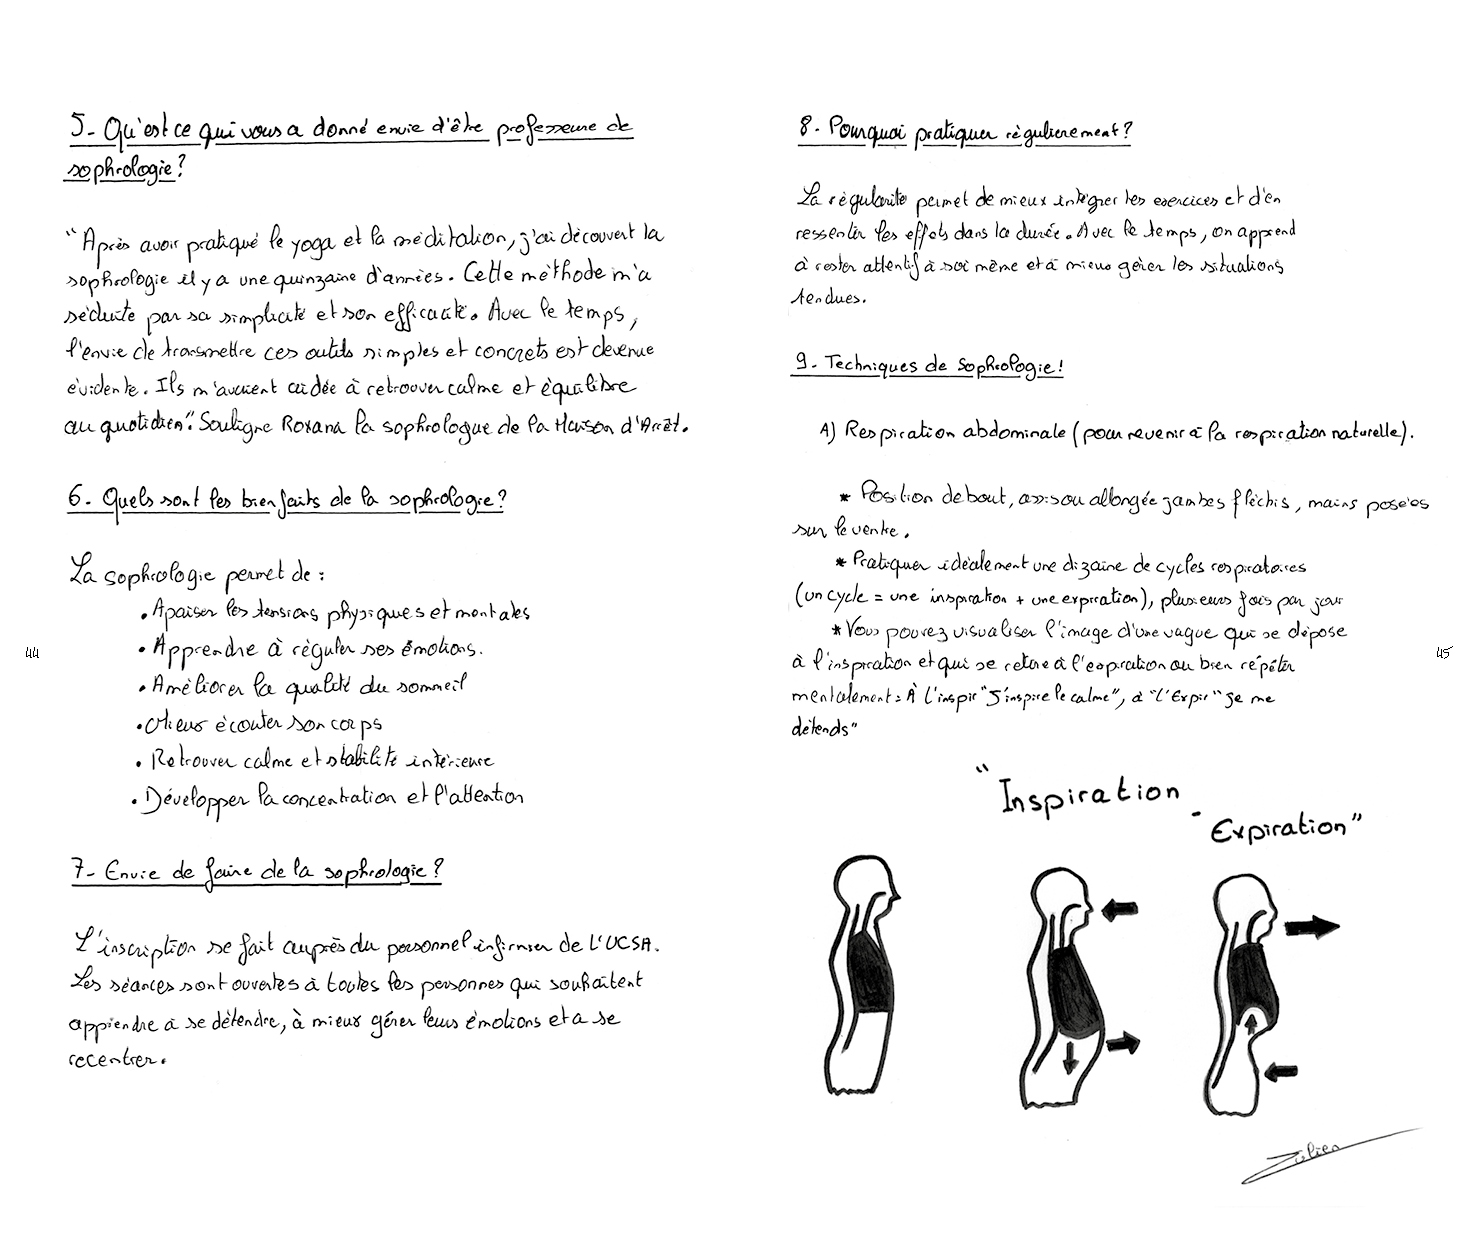 5- Qu'est ce qui vous a donné envie d'être professeure de
sophrologie?
"Après avoir pratiqué le yoga et la méditation, j'ai découvert la
sophrologie il y a une quinzaine d'années. Cette méthode m'a
séduite par sa simplicité et son efficacité. Avec le temps,
l'envie de transmettre ces outils simples et concrets est devenue
évidente. Ils m'avaient aidée à retrouver calme et équilibre
au quotidien". Souligne Roxana la sophrologue de la Maison d'Arrêt.
6- Quels sont les bienfaits de la sophrologie?
La sophrologie permet de :
• Apaiser les tensions physiques et mentales
• Apprendre à réguler ses émotions.
• Améliorer la qualité du sommeil
• Mieux écouter son corps
• Retrouver calme et stabilité intérieure
• Développer la concentration et l'attention
7- Envie de faire de la sophrologie?
L'inscription se fait auprès du personnel infirmier de L'UCSA.
Les séances sont ouvertes à toutes les personnes qui souhaitent
apprendre a se détendre, à mieux gérer leurs émotions et a se
recentrer.
44
8- Pourquoi pratiquer régulierement?
La régularité permet de mieux intégrer les exercices et d'en
ressentir les effets dans la durée. Avec le temps, on apprend
à rester attentif à soi même et à mieux gérer les situations
tendues.
9- Techniques de Sophrologie!
A) Respiration abdominale (pour revenir à la respiration naturelle).
* Position debout, assis ou allongée jambes fléchis, mains posées
sur le ventre.
* Pratiquer idéalement une dizaine de cycles respiratoires
(un cycle = une inspiration + une expiration), plusieurs fois par jour
* Vous pouvez visualiser l'image d'une vague qui se dépose
à l'inspiration et qui se retire à l'expiration ou bien répéter
mentalement : À l'inspir "J'inspire le calme", à "l'Expir" "Je me
détends"
"Inspiration
- Expiration"
Julien
45